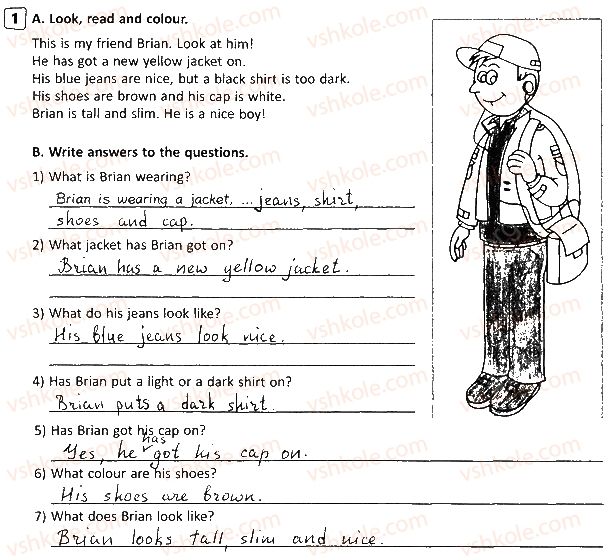 1 A. Look, read and colour.
This is my friend Brian. Look at him!
He has got a new yellow jacket on.
His blue jeans are nice, but a black shirt is too dark.
His shoes are brown and his cap is white.
Brian is tall and slim. He is a nice boy!
B. Write answers to the questions.
1) What is Brian wearing?
Brian is wearing a jacket, ... jeans, shirt,
shoes and cap.
2) What jacket has Brian got on?
Brian has a new yellow jacket.
3) What do his jeans look like?
His blue jeans look nice.
4) Has Brian put a light or a dark shirt on?
Brian puts a dark shirt.
5) Has Brian got his cap on?
Yes, he has got his cap on.
6) What colour are his shoes?
His shoes are brown.
7) What does Brian look like?
Brian looks tall, slim and nice.
vshkole.com